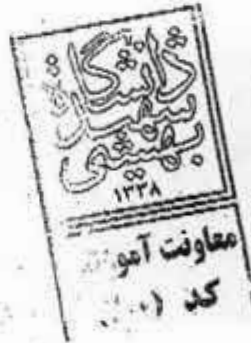 دانشگاه
شهید
بهشتی
۱۳۳۸
معاونت
کد